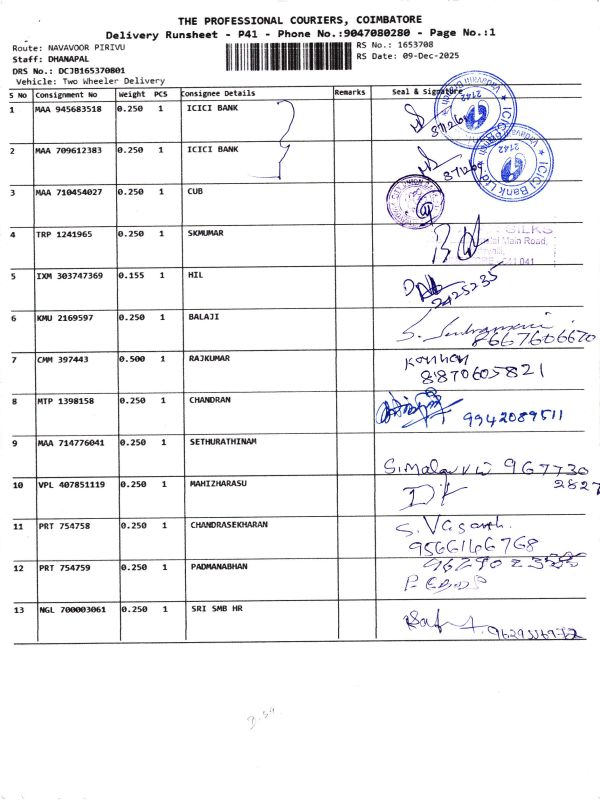 THE PROFESSIONAL COURIERS, COIMBATORE
Delivery Runsheet - P41 - Phone No.:9047080280 - Page No.:1
Route: NAVAVOOR PIRIVU
RS No.: 1653708
Staff: DHANAPAL
RS Date: 09-Dec-2025
DRS No.: DCJB165370801
Vehicle: Two Wheeler Delivery
S No Consignment No Weight PCS Consignee Details Remarks Seal & Signature
1 MAA 945683518 0.250 1 ICICI BANK
2 MAA 709612383 0.250 1 ICICI BANK
ICICI Bank Ltd. 2142
3 MAA 710454027 0.250 1 CUB
4 TRP 1241965 0.250 1 SKMUMAR
SILKS
Main Road,
641 041
5 IXM 303747369 0.155 1 HIL
2425235
6 KMU 2169597 0.250 1 BALAJI
8667606620
7 CMM 397443 0.500 1 RAJKUMAR
Kannan
8870605821
8 MTP 1398158 0.250 1 CHANDRAN
9942089511
9 MAA 714776041 0.250 1 SETHURATHINAM
967730
2827
10 VPL 407851119 0.250 1 MAHIZHARASU
11 PRT 754758 0.250 1 CHANDRASEKHARAN
S. Vasanth.
9566146768
12 PRT 754759 0.250 1 PADMANABHAN
13 NGL 700003061 0.250 1 SRI SMB HR